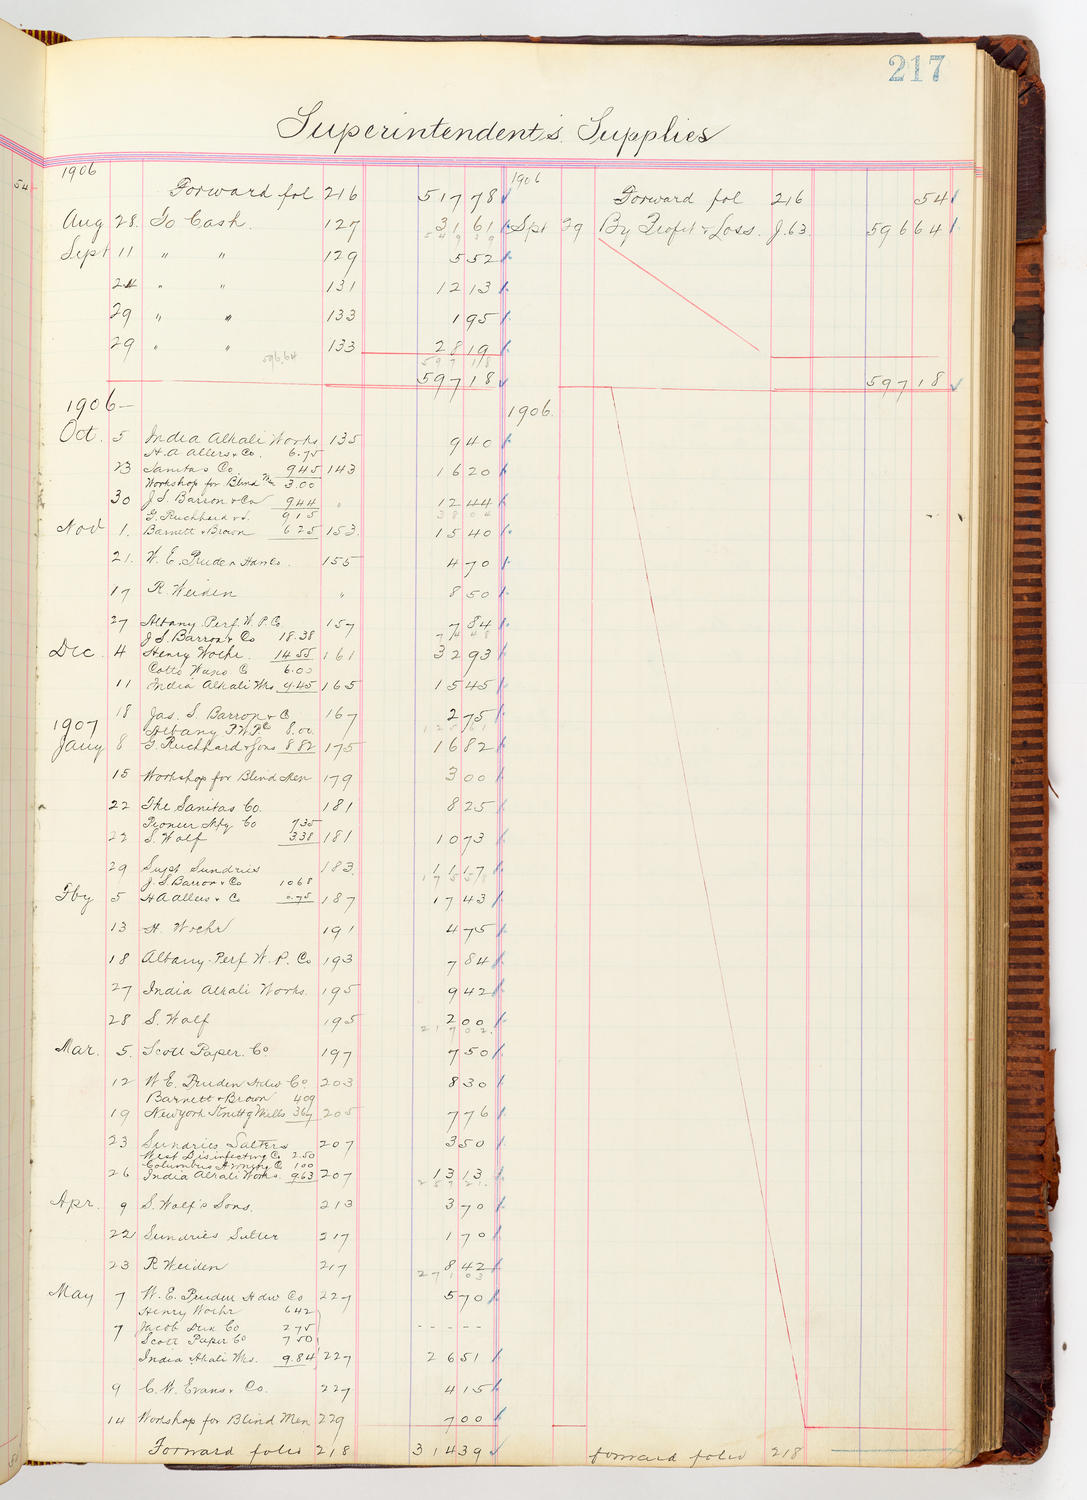 217
Superintendent's Supplies
54
1906
Forward fol 216 517 78
Aug 28. To Cash. 127 31 61
549 39
Sept 11 " " 129 5 52
24 " " 131 12 13
29 " " 133 1 95
29 " " 133 28 19
596.64 597 18
597 18
1906
Forward fol 216 54
Spt 29 By Profit & Loss. J. 63. 596 64
597 18
1906—
1906.
Oct. 5 India Alkali Works 135 9 40
H. A Allers & Co. 6.75
23 Sanitas Co. 9 45 143 16 20
Workshop for Blind Men 3.00
30 J. S. Barron & Co 9 44 " 12 44
38 04
G. Ruchhard & S. 9 15
Nov 1. Barnett & Brown 6 25 153. 15 40
21. W. E. Pruden Hdw Co. 155 4 70
17 R. Weiden " 8 50
27 Albany Perf. W. P. Co. 157 7 84
74 48
J. S. Barron & Co 18.38
Dec 4 Henry Woehr. 14 55 161 32 93
Cotto Waxo. C 6.00
11 India Alkali Wks 9.45 165 15 45
18 Jas. S. Barron & C 167 2 75
125 61
1907
Albany P. W. P Co 8.00
Jany 8 G. Ruchhard & Sons 8 82 175 16 82
15 Workshop for Blind Men 179 3 00
22 The Sanitas Co. 181 8 25
Pioneer Mfg Co 7 35
22 S. Wolf 3 38 181 10 73
29 Supt Sundries 183. 11 17
175 58
J. S. Barron & Co 10 68
Fby 5 H A Allers & C 6.75 187 17 43
13 H. Woehr 191 4 75
18 Albany Perf W. P. Co 193 7 84
27 India Alkali Works. 195 9 42
28 S. Wolf 195 2 00
217 02
Mar. 5. Scott Paper. Co 197 7 50
12 W E. Pruden Hdw Co. 203 8 30
Barnett & Brown 4 09
19 New york Knitt'g Mills 3 67 205 7 76
23 Sundries Salters 207 3 50
West Disinfecting Co 2.50
Columbus Awning Co 1 00
26 India Alkali Works. 9 63 207 13 13
257 21.
Apr. 9 S. Wolf's Sons. 213 3 70
22 Sundries Sulter 217 1 70
23 R Weiden 217 8 42
271 03
May 7 W. E. Pruden Hdw Co 227 5 70
Henry Woehr 6 42
7 Jacob Dux Co 2 75 - - - - -
Scott Paper Co 7 50
India Alkali Wks. 9.84 227 26 51
9 C. W. Evans & Co. 227 4 15
14 Workshop for Blind Men 229 7 00
Forward folio 218 314 39
forward folio 218